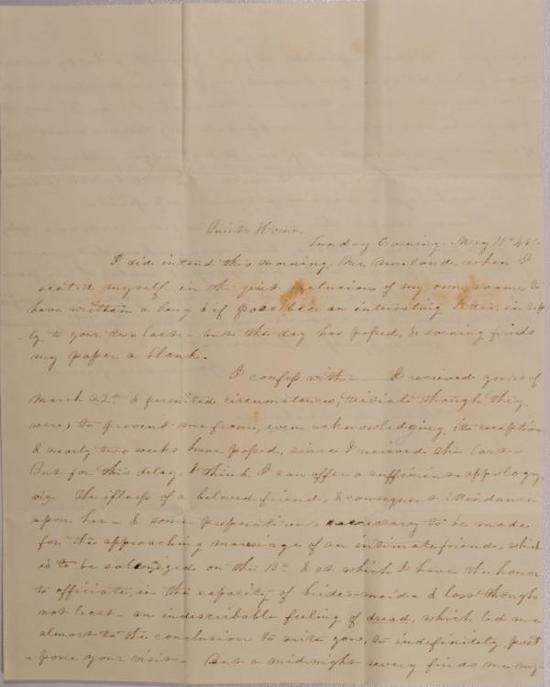 Quiet Home,
Sunday Evening. May 11th 45.
I did intend this morning, Mr. when I
seated myself in the quiet seclusion of my own room, to
have written a long & if possible an interesting letter, in rep
ly, to your two last - but the day has passed, & evening finds
my paper a blank.
I confess with I recieved yours of
March 22d & permited circumstances, trivial though they
were, to prevent me from, even acknowledging, its reception
& nearly two weeks have passed, since I recieved the last
But for this delay, I think I can offer a sufficient appology,
viz The illness of a beloved friend, & consequent attendance
upon her - & some preparations necessary to be made
for the approaching marriage of an intimate friend, which
is to be solemnized on the 13th & at which I have the honor
to officiate, in the capacity of brides-maid - & last though
not least - an indescribable feeling of dread, which led me
almost to the conclusion to write you, to indefinitely post
-pone your visit - But a mid-night revery finds me my